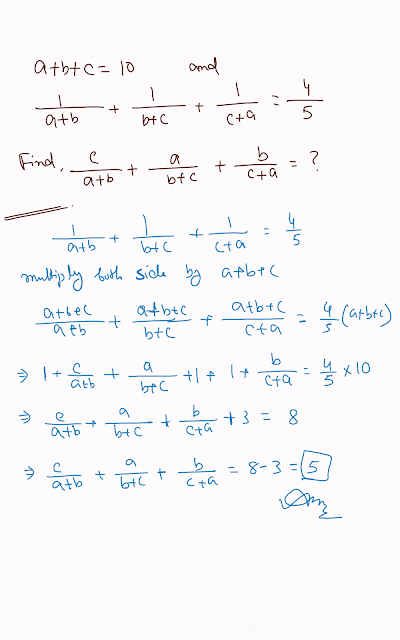 a+b+c = 10 and
1/(a+b) + 1/(b+c) + 1/(c+a) = 4/5
Find, c/(a+b) + a/(b+c) + b/(c+a) = ?
1/(a+b) + 1/(b+c) + 1/(c+a) = 4/5
multiply both side by a+b+c
(a+b+c)/(a+b) + (a+b+c)/(b+c) + (a+b+c)/(c+a) = 4/5 (a+b+c)
⇒ 1 + c/(a+b) + a/(b+c) + 1 + 1 + b/(c+a) = 4/5 × 10
⇒ c/(a+b) + a/(b+c) + b/(c+a) + 3 = 8
⇒ c/(a+b) + a/(b+c) + b/(c+a) = 8-3 = 5
Ans